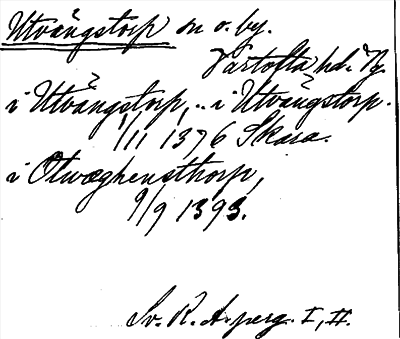 Utvängstorp sn o. by.
Vartofta hd. Vg.
i Utvängstorp, .. i Utvängstorp.
1/11 1376 Skara.
i Otwæghensthorp,
9/9 1393.
Sv. R. A. perg. I, II.